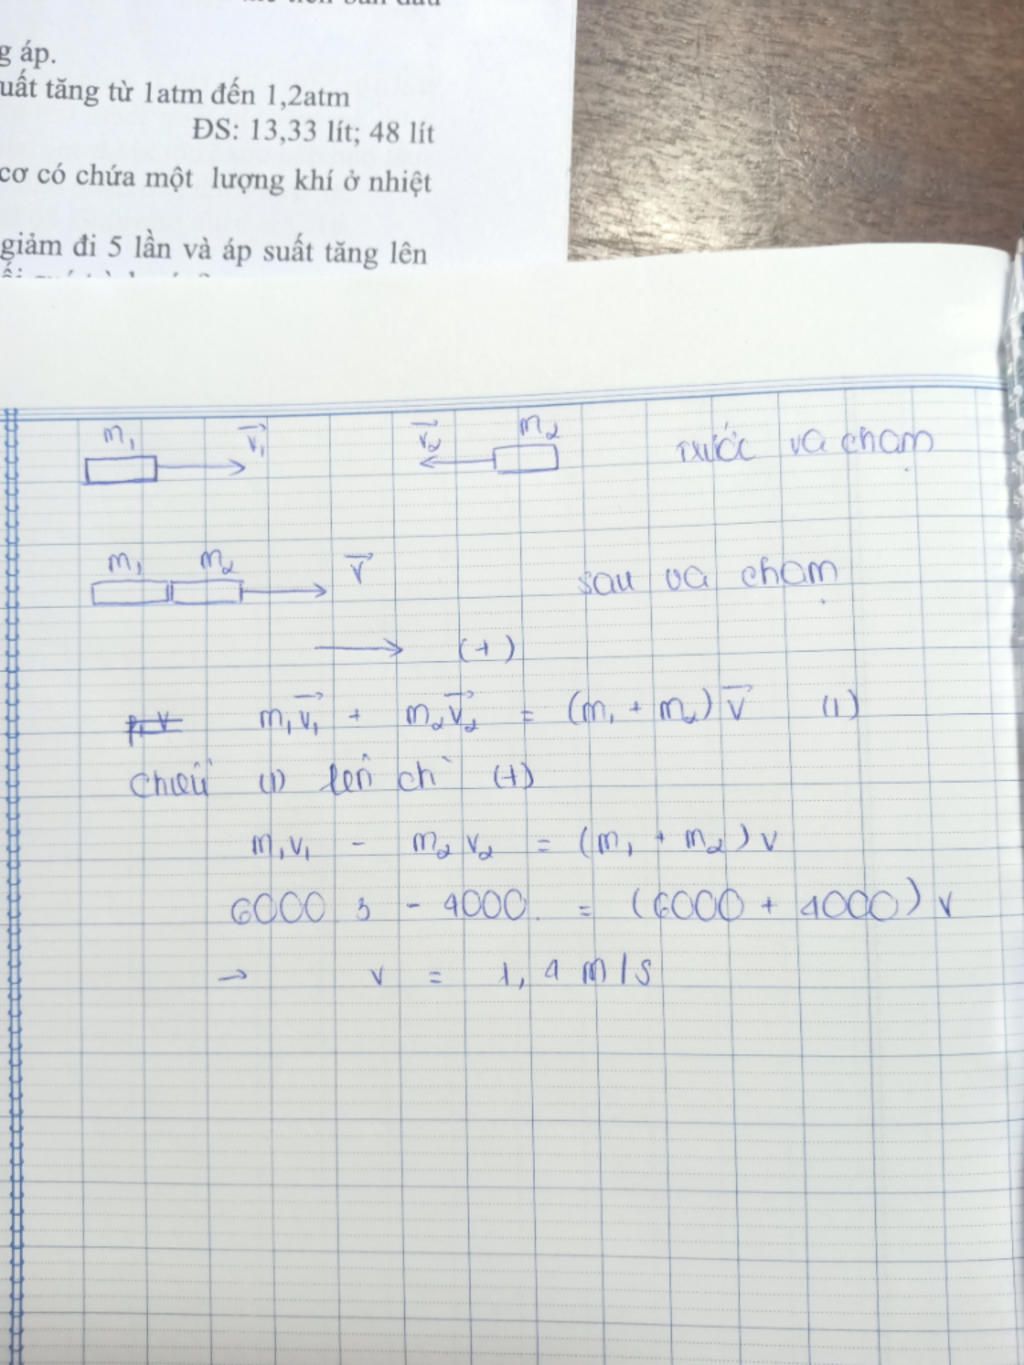 g áp.
uất tăng từ 1atm đến 1,2atm
ĐS: 13,33 lít; 48 lít
cơ có chứa một lượng khí ở nhiệt
giảm đi 5 lần và áp suất tăng lên
m₁ v₁⃗ v₂⃗ m₂ trước va chạm
m₁ m₂ v⃗ sau va chạm
(+)
m₁v₁⃗ + m₂v₂⃗ = (m₁ + m₂) v⃗ (1)
Chiếu (1) lên ch (+)
m₁v₁ - m₂v₂ = (m₁ + m₂) v
6000 3 - 4000. = (6000 + 4000) v
→ v = 1,4 m/s